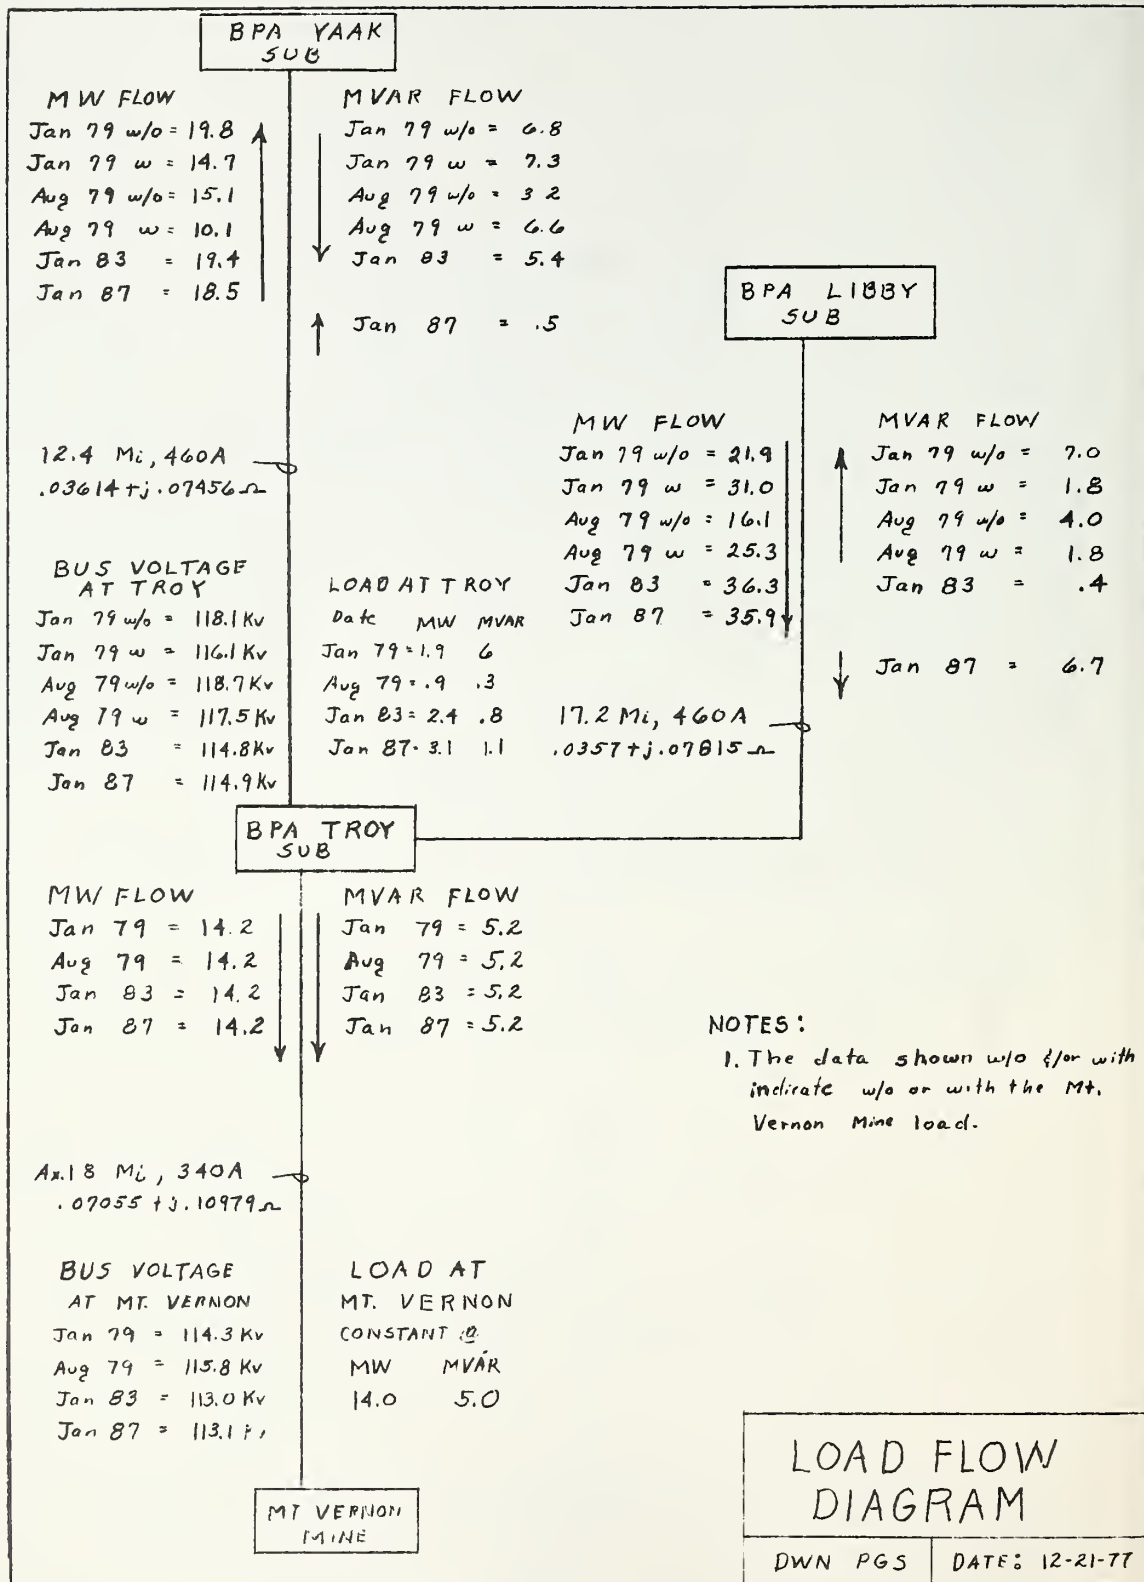 BPA YAAK
SUB
MW FLOW
Jan 79 w/o = 19.8
Jan 79 w = 14.7
Aug 79 w/o = 15.1
Aug 79 w = 10.1
Jan 83 = 19.4
Jan 87 = 18.5
MVAR FLOW
Jan 79 w/o = 6.8
Jan 79 w = 7.3
Aug 79 w/o = 3 2
Aug 79 w = 6.6
Jan 83 = 5.4
Jan 87 = .5
BPA LIBBY
SUB
MW FLOW
Jan 79 w/o = 21.9
Jan 79 w = 31.0
Aug 79 w/o = 16.1
Aug 79 w = 25.3
Jan 83 = 36.3
Jan 87 = 35.9
MVAR FLOW
Jan 79 w/o = 7.0
Jan 79 w = 1.8
Aug 79 w/o = 4.0
Aug 79 w = 1.8
Jan 83 = .4
Jan 87 = 6.7
12.4 Mi, 460A
.03614+j.07456Ω
BUS VOLTAGE
AT TROY
Jan 79 w/o = 118.1 Kv
Jan 79 w = 116.1 Kv
Aug 79 w/o = 118.7 Kv
Aug 79 w = 117.5 Kv
Jan 83 = 114.8 Kv
Jan 87 = 114.9 Kv
LOAD AT TROY
Date MW MVAR
Jan 79 = 1.9 6
Aug 79 = .9 .3
Jan 83 = 2.4 .8
Jan 87 = 3.1 1.1
17.2 Mi, 460A
.0357+j.07815Ω
BPA TROY
SUB
MW FLOW
Jan 79 = 14.2
Aug 79 = 14.2
Jan 83 = 14.2
Jan 87 = 14.2
MVAR FLOW
Jan 79 = 5.2
Aug 79 = 5.2
Jan 83 = 5.2
Jan 87 = 5.2
NOTES:
1. The data shown w/o &/or with
indicate w/o or with the Mt.
Vernon Mine load.
Ax.18 Mi, 340A
.07055+j.10979Ω
BUS VOLTAGE
AT MT. VERNON
Jan 79 = 114.3 Kv
Aug 79 = 115.8 Kv
Jan 83 = 113.0 Kv
Jan 87 = 113.1
LOAD AT
MT. VERNON
CONSTANT @
MW MVAR
14.0 5.0
MT VERNON
MINE
LOAD FLOW
DIAGRAM
DWN PGS
DATE: 12-21-77